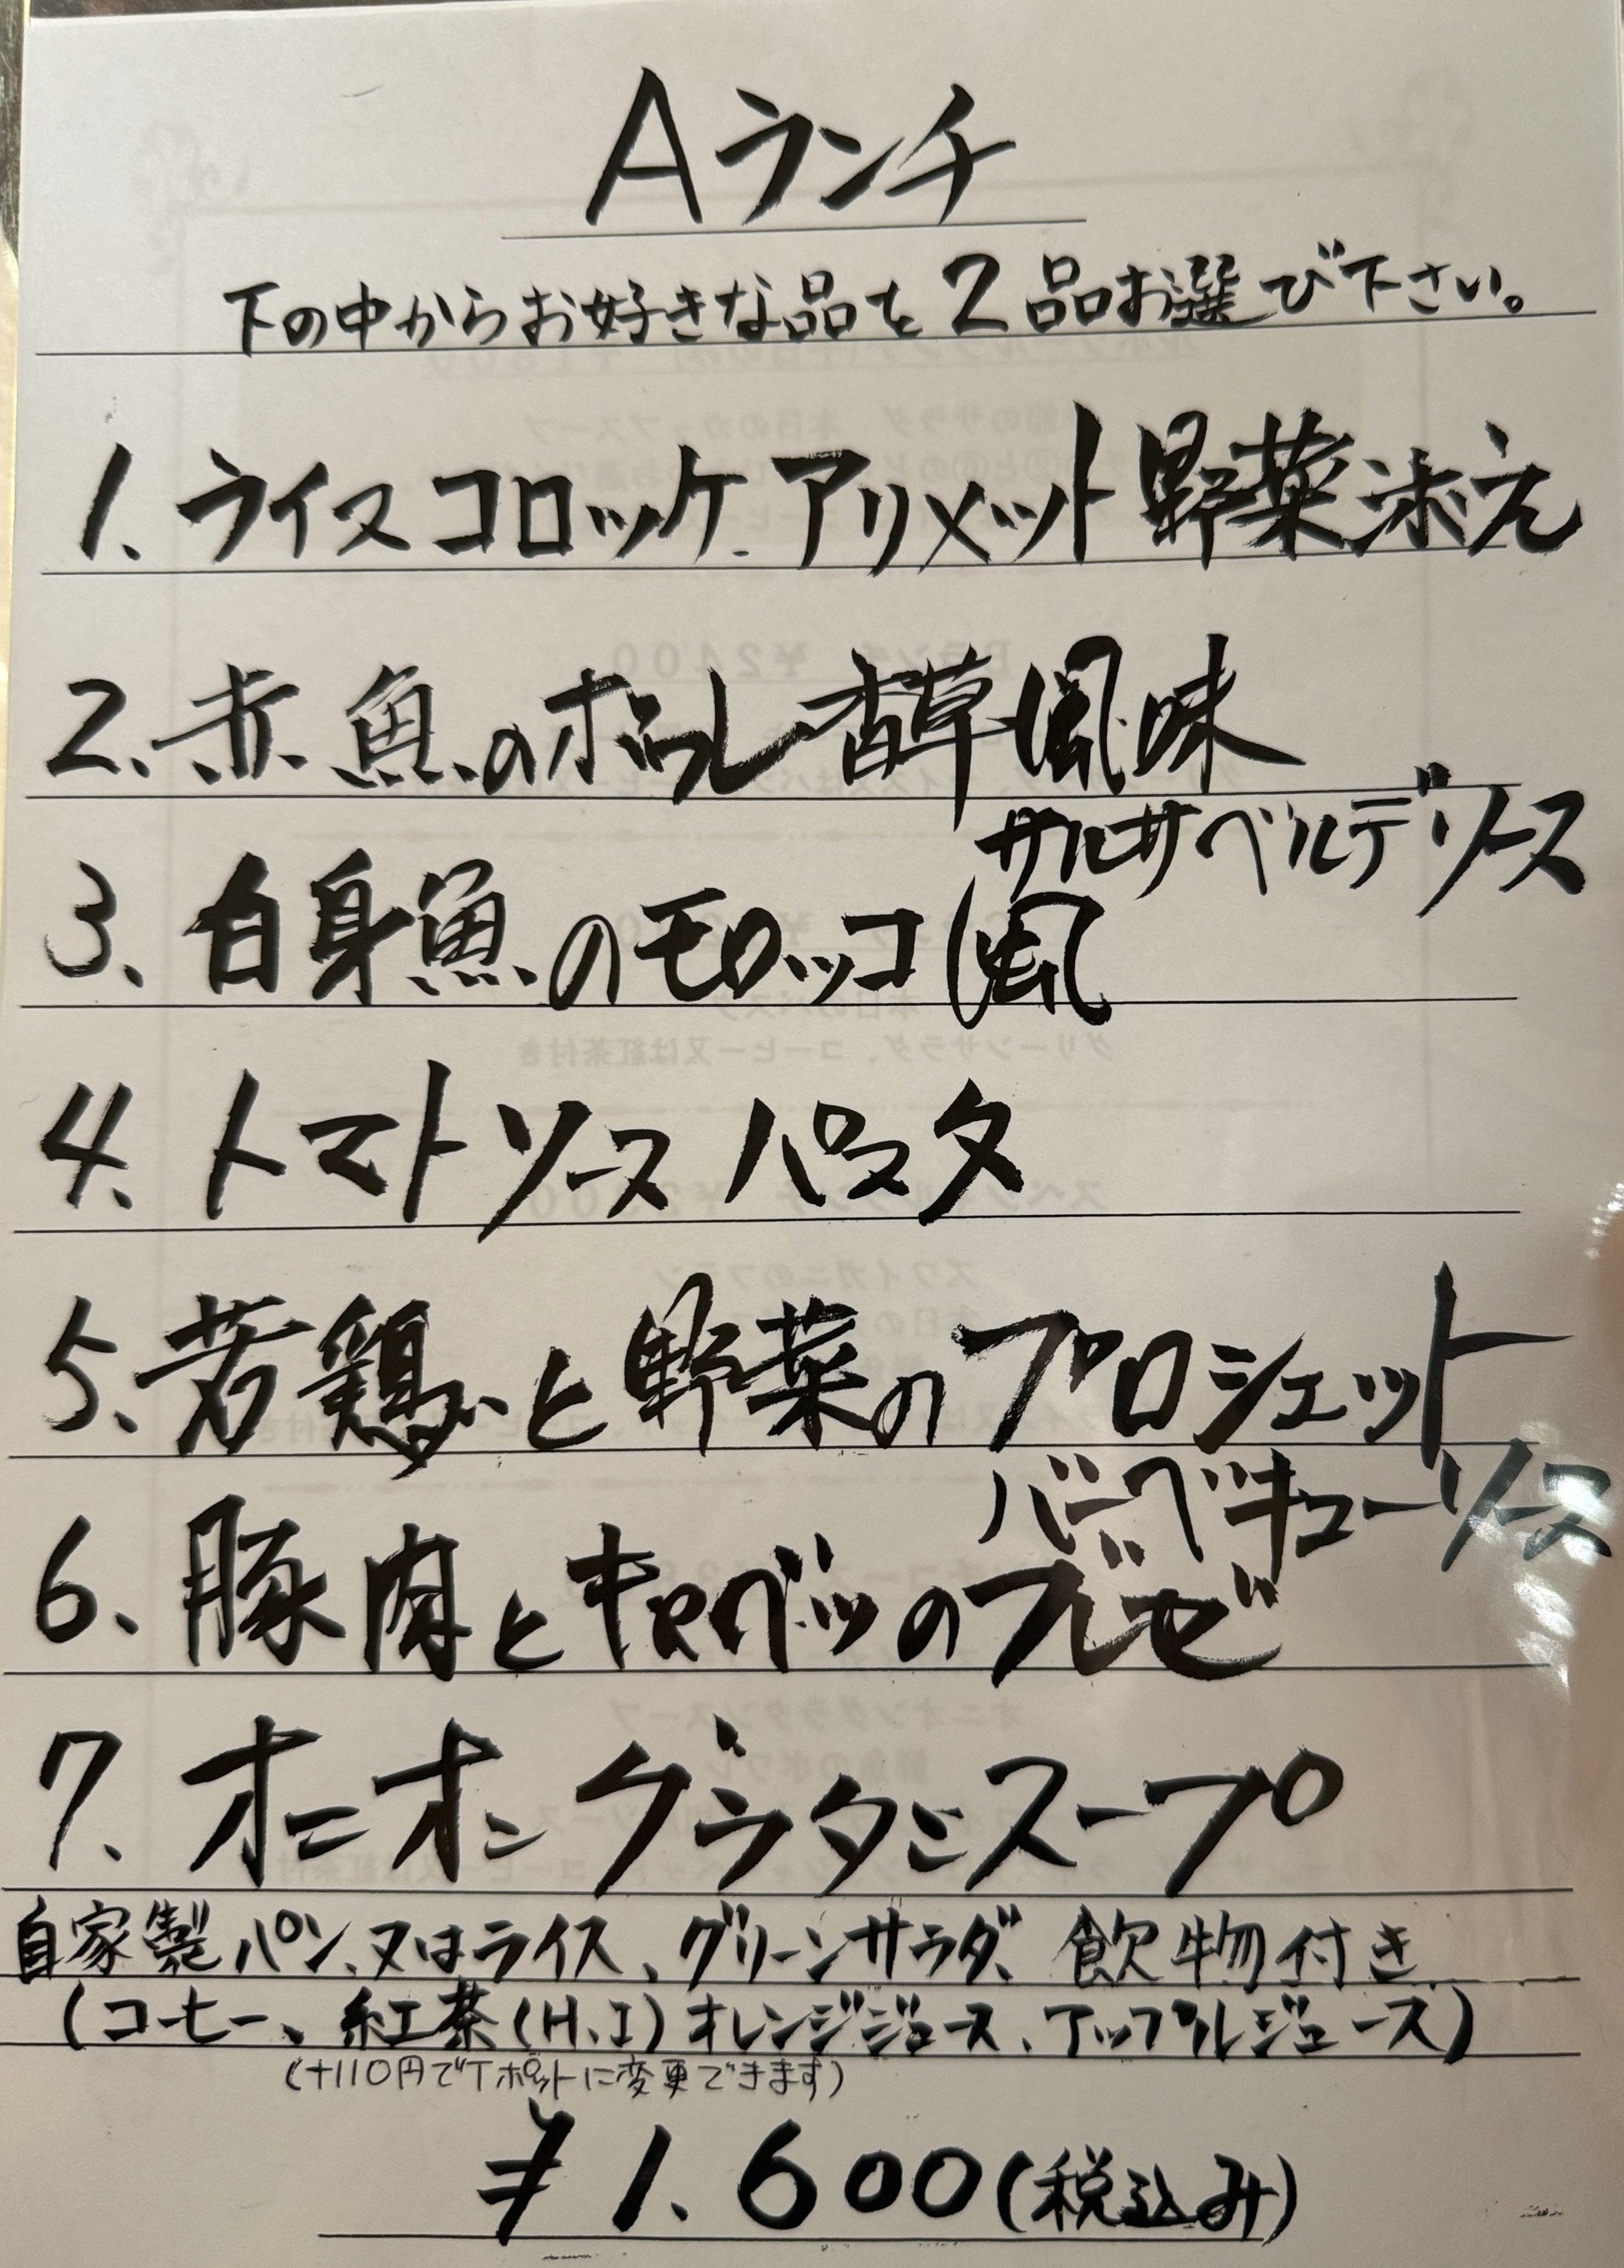 Aランチ
下の中からお好きな品を2品お選び下さい。
1. ライスコロッケ アリメット野菜添え
2. 赤魚のポワレ香草風味
サルサベルデソース
3. 白身魚のモロッコ風
4. トマトソースパスタ
5. 若鶏と野菜のブロシェット
バーベキューソース
6. 豚肉とキャベツのブレゼ
7. オニオングラタンスープ
自家製パン、又はライス、グリーンサラダ、飲物付き
(コーヒー、紅茶(H、I)オレンジジュース、アップルジュース)
(+110円でTポットに変更できます)
¥1.600(税込み)